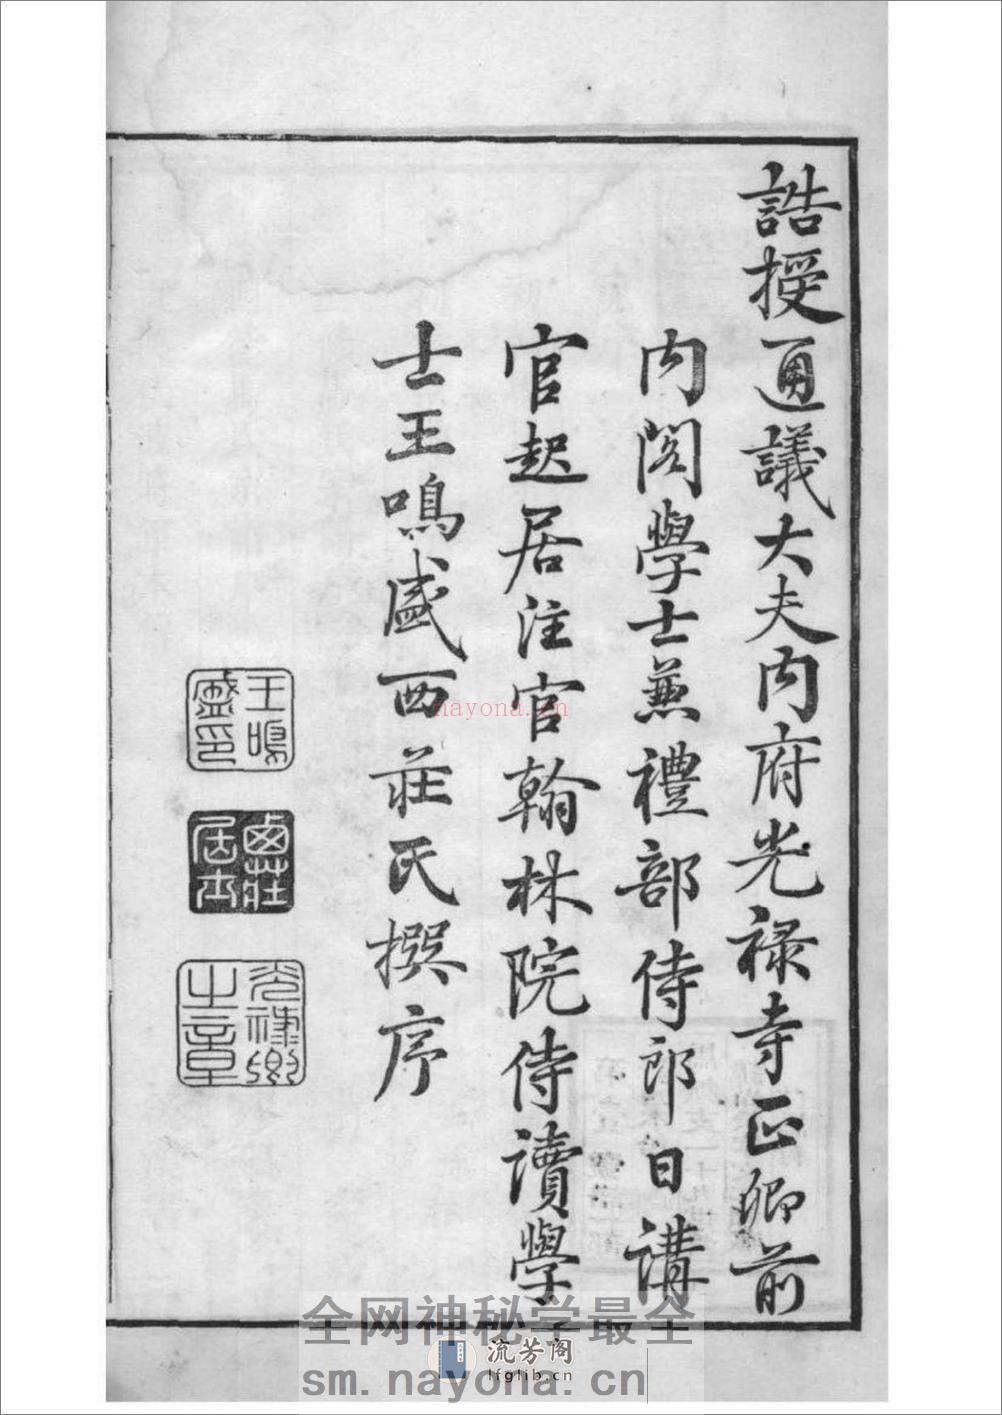 誥授通議大夫内府光禄寺正卿前
内閣學士兼禮部侍郎日講
官起居注官翰林院侍讀學
士王鳴盛西莊氏撰序
王鳴
盛印
西莊
居士
光禄卿
之章
nayona.cn
全网神秘学最全
流芳阁
lfglib.cn
sm.nayona.cn